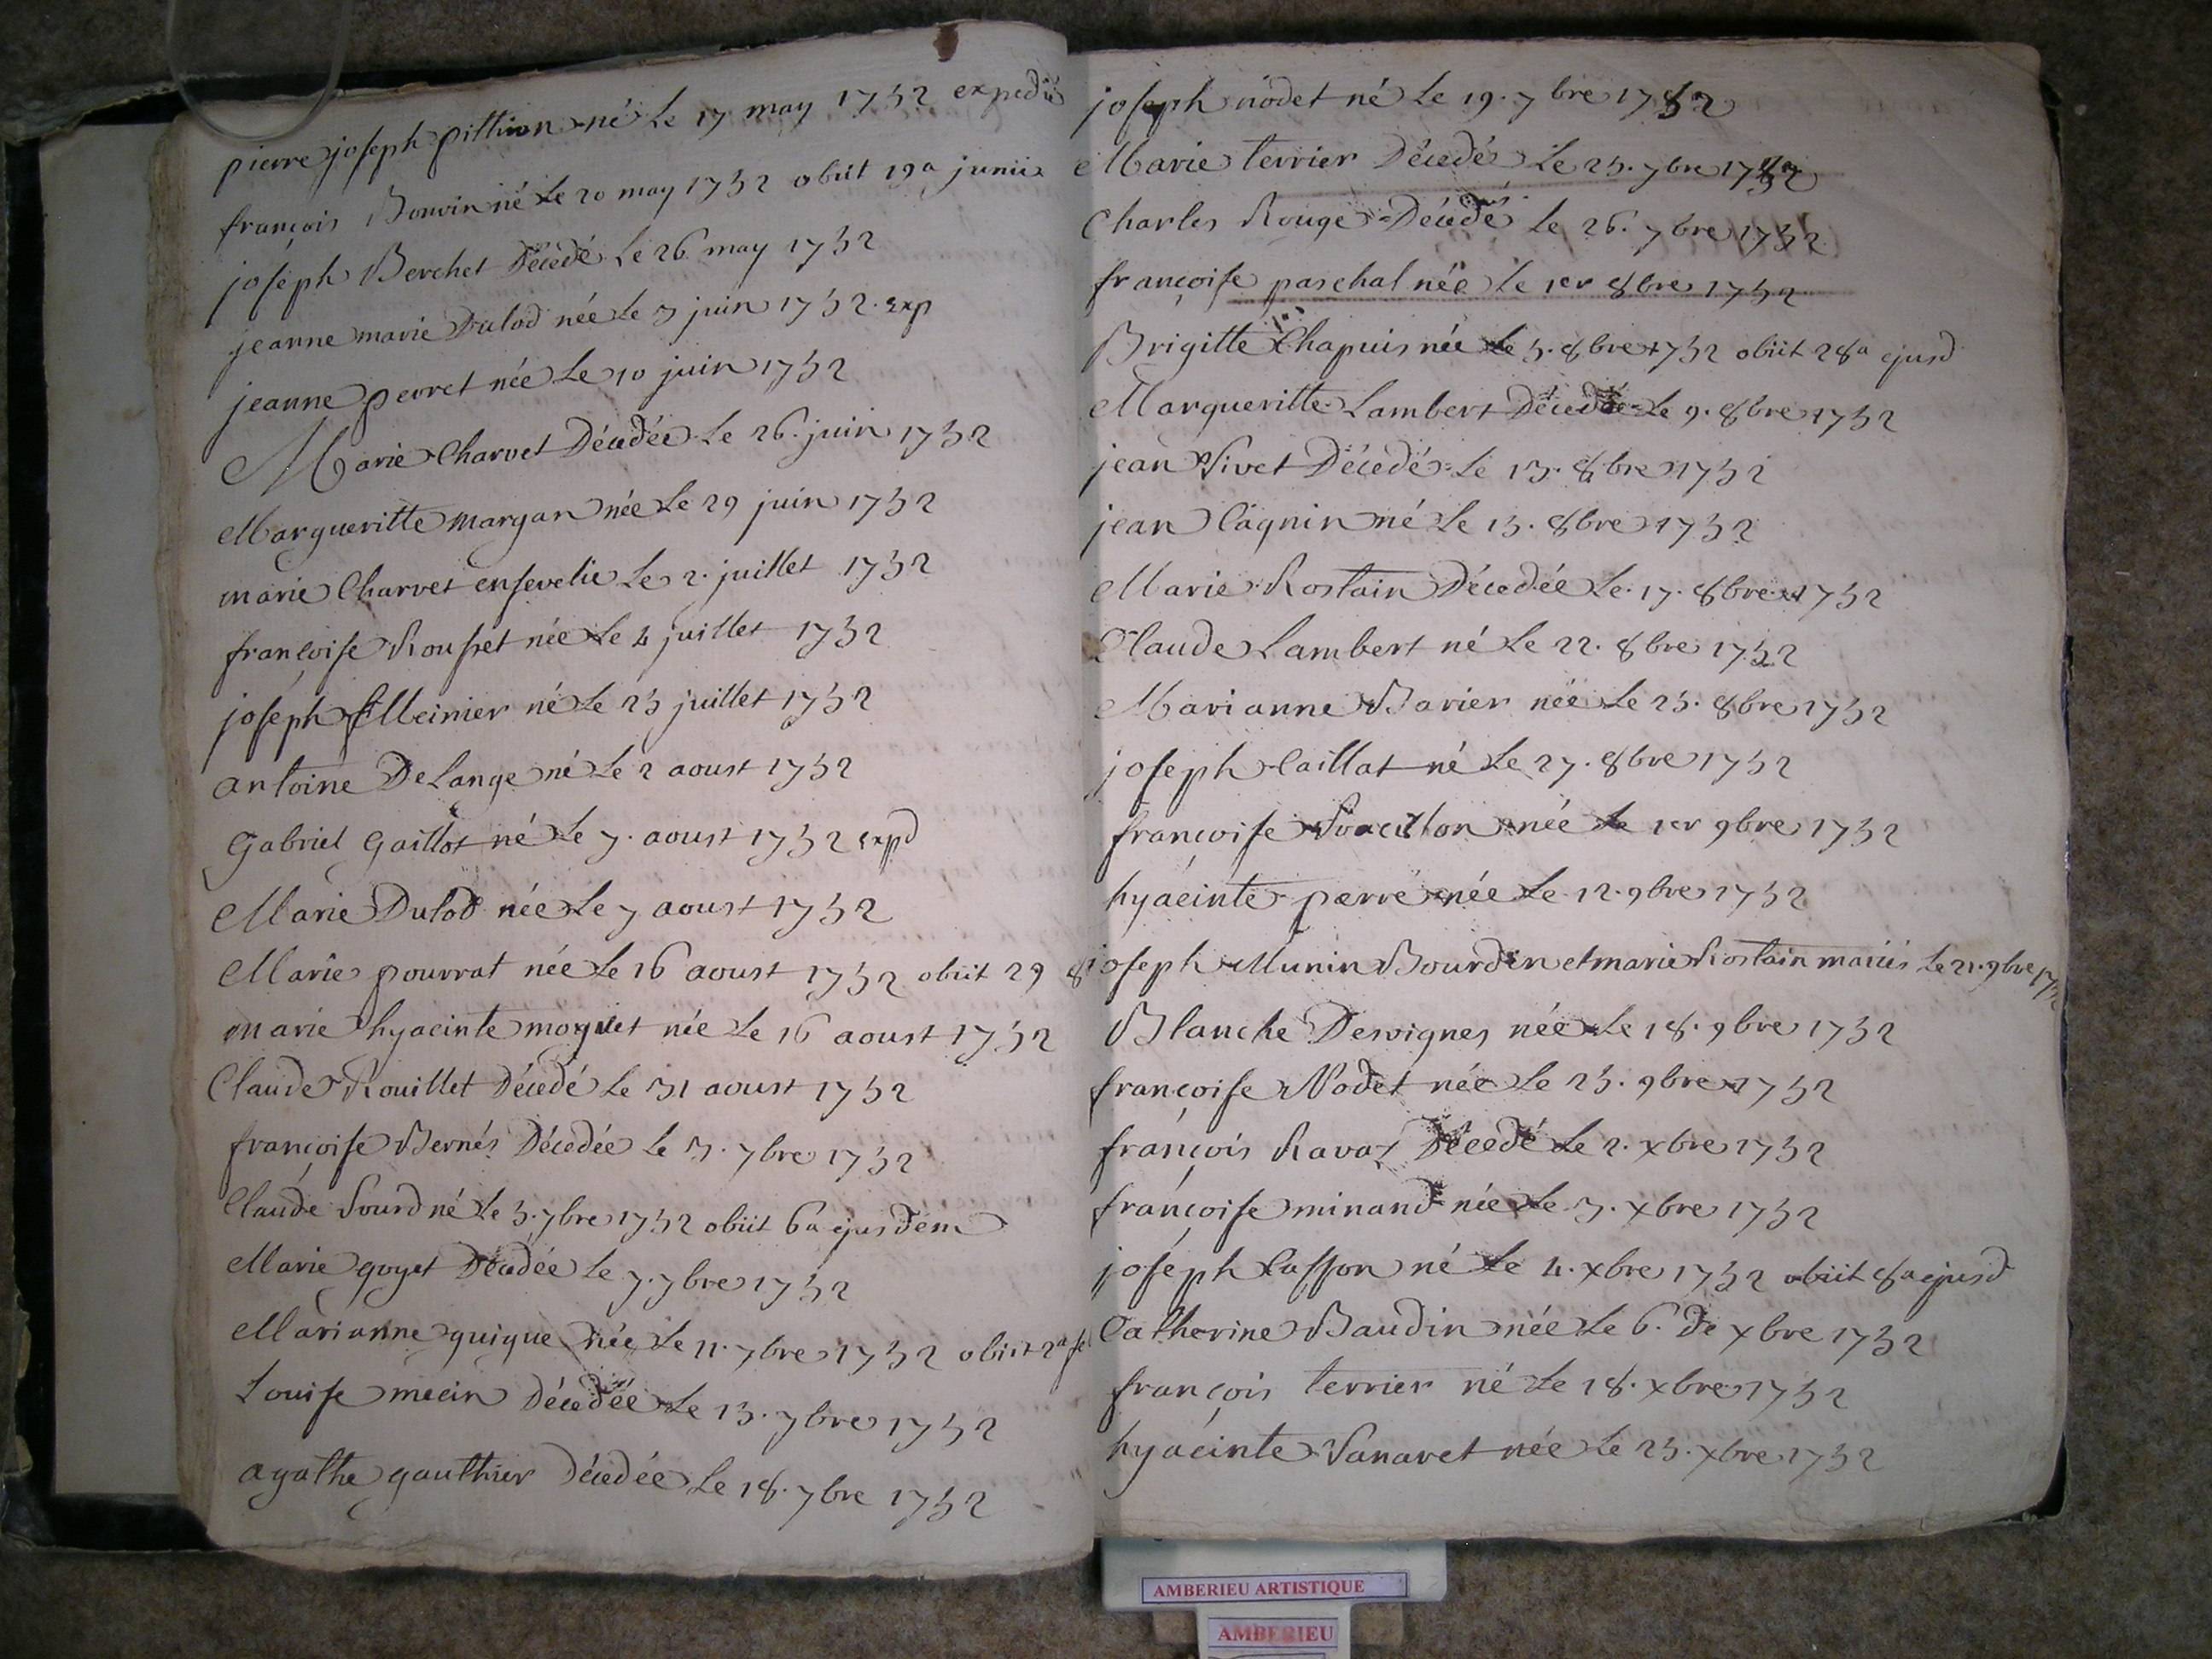 pierre joseph pittion né Le 17 may 1732 expedié
françois Bonvin né Le 20 may 1732 obiit 19a junii
joseph Berchet Décedé Le 26 may 1732
jeanne marie Dulod née Le 3 juin 1732. exp
jeanne perret née Le 10 juin 1732
Marie Charvet Décedée Le 26. juin 1732
Margueritte margan née Le 29 juin 1732
marie Charvet ensevelie Le 2. juillet 1732
françoise Rousset née Le 4 juillet 1732
joseph Meinier né Le 23 juillet 1732
antoine DeLange né Le 2 aoust 1732
gabriel gaillot né Le 7. aoust 1732 expd
Marie Dulod née Le 7 aoust 1732
Marie pourrat née Le 16 aoust 1732 obiit 29 8
marie hyacinte moquet née Le 16 aoust 1732
Claude Rouillet Décedé Le 31 aoust 1732
françoise Bernés Décedée Le 3. 7bre 1732
Claude Sourd né Le 3. 7bre 1732 obiit 6a ejusdem
Marie goyet Décedée Le 7. 7bre 1732
Marianne guigue née Le 11. 7bre 1732 obiit 2a
Louise mecin Décedée Le 13. 7bre 1732
agathe gauthier Décedée Le 18. 7bre 1732
joseph nodet né Le 19. 7bre 1732
Marie terrier Décedée Le 23. 7bre 1732
Charles Rouge Décedé Le 26. 7bre 1732
françoise paschal née Le 1er 8bre 1732
Brigitte Chapuis née Le 3. 8bre 1732 obiit 28a ejusd
Margueritte Lambert Décedée Le 9. 8bre 1732
jean Sivet Décedé Le 13. 8bre 1732
jean Cagnin né Le 13. 8bre 1732
Marie Rostain Décedée Le. 17. 8bre 1732
Claude Lambert né Le 22. 8bre 1732
Marianne Barier née Le 23. 8bre 1732
joseph Caillat né Le 27. 8bre 1732
françoise née Le 1er 9bre 1732
hyacinte née Le 12. 9bre 1732
joseph Munin Bourdin et marie Rostain mariés Le 21. 9bre 1732
Blanche Desvignes née Le 18. 9bre 1732
françoise Nodet née Le 23. 9bre 1732
françois Ravat Décedé Le 2. xbre 1732
françoise minand née Le 3. xbre 1732
joseph Casson né Le 4. xbre 1732 obiit 8a ejusd
Catherine Baudin née Le 6. de xbre 1732
françois terrier né Le 18. xbre 1732
hyacinte Sanaret née Le 23. xbre 1732
AMBERIEU ARTISTIQUE
AMBERIEU